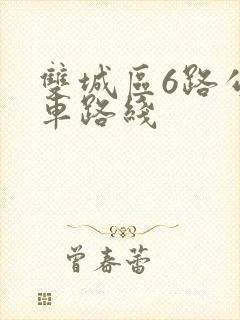 雙城區6路公
車路綫
曾春蕾